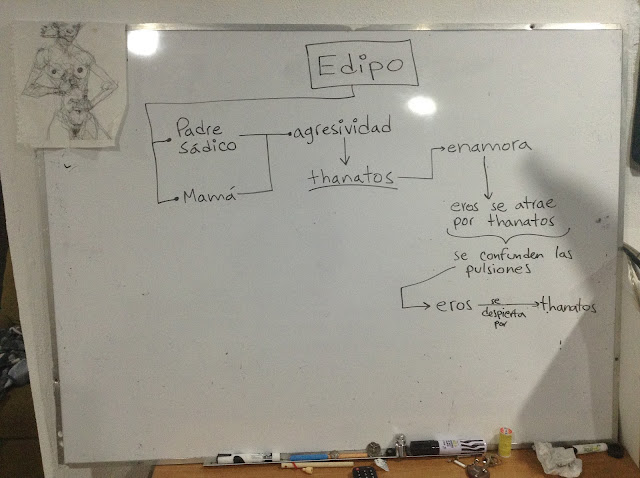 Edipo
Padre
sádico
Mamá
agresividad
thanatos
enamora
eros se atrae
por thanatos
se confunden las
pulsiones
eros se despierta por thanatos